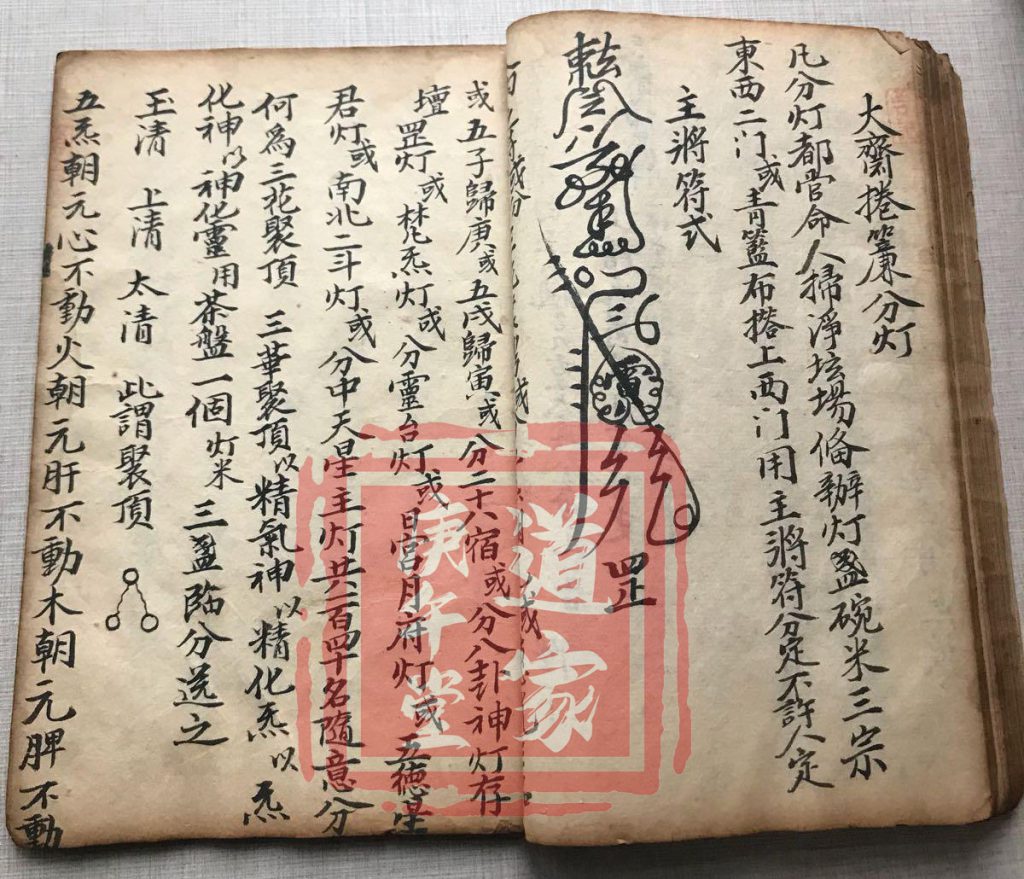 大齋捲簾分灯
凡分灯都管命人掃淨坛場俻辦灯盞碗米三宗
東西二门或青籃布搭上西门用主將符分定不許人定
主將符式
罡
或五子歸庚或五戊歸寅或分二十八宿或分八卦神灯存
壇罡灯或梵炁灯或分靈台灯或日宮月府灯或五德星
君灯或南北二斗灯或分中天星主灯共二百四十名隨意分
何為三花聚頂 三華聚頂以精氣神以精化炁以炁
化神以神化靈用茶盤一個灯米三盞臨分送之
玉清 上清 太清 此謂聚頂
五炁朝元心不動火朝元肝不動木朝元脾不動
道家
堂